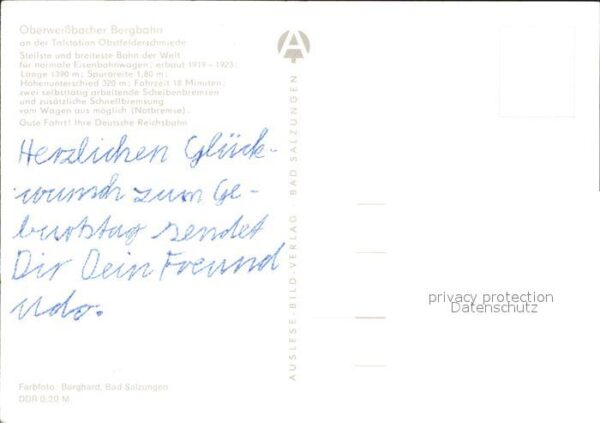 Oberweißbacher Bergbahn
an der Talstation Obstfelderschmiede
Steilste und breiteste Bahn der Welt
für normale Eisenbahnwagen; erbaut 1919 – 1923;
Länge 1390 m; Spurbreite 1,80 m;
Höhenunterschied 320 m; Fahrzeit 18 Minuten;
zwei selbsttätig arbeitende Scheibenbremsen
und zusätzliche Schnellbremsung
vom Wagen aus möglich (Notbremse).
Gute Fahrt! Ihre Deutsche Reichsbahn
Herzlichen Glück-
wunsch zum Ge-
burtstag sendet
Dir Dein Freund
Udo.
Farbfoto: Burghard, Bad Salzungen
DDR 0,20 M
AUSLESE-BILD-VERLAG BAD SALZUNGEN
A
privacy protection
Datenschutz